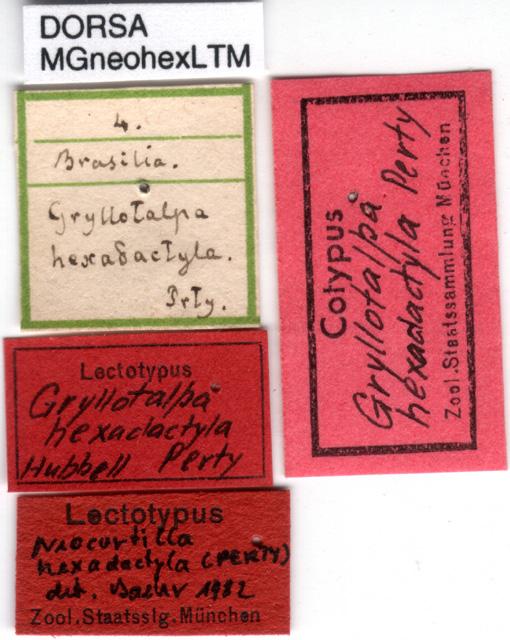 DORSA
MGneohexLTM
4.
Brasilia.
Gryllotalpa
hexadactyla.
Prty.
Lectotypus
Gryllotalpa
hexadactyla
Hubbell Perty
Lectotypus
Neocurtilla
hexadactyla (PERTY)
det. Baehr 1982
Zool. Staatsslg. München
Cotypus
Gryllotalpa
hexadactyla Perty
Zool. Staatssammlung München